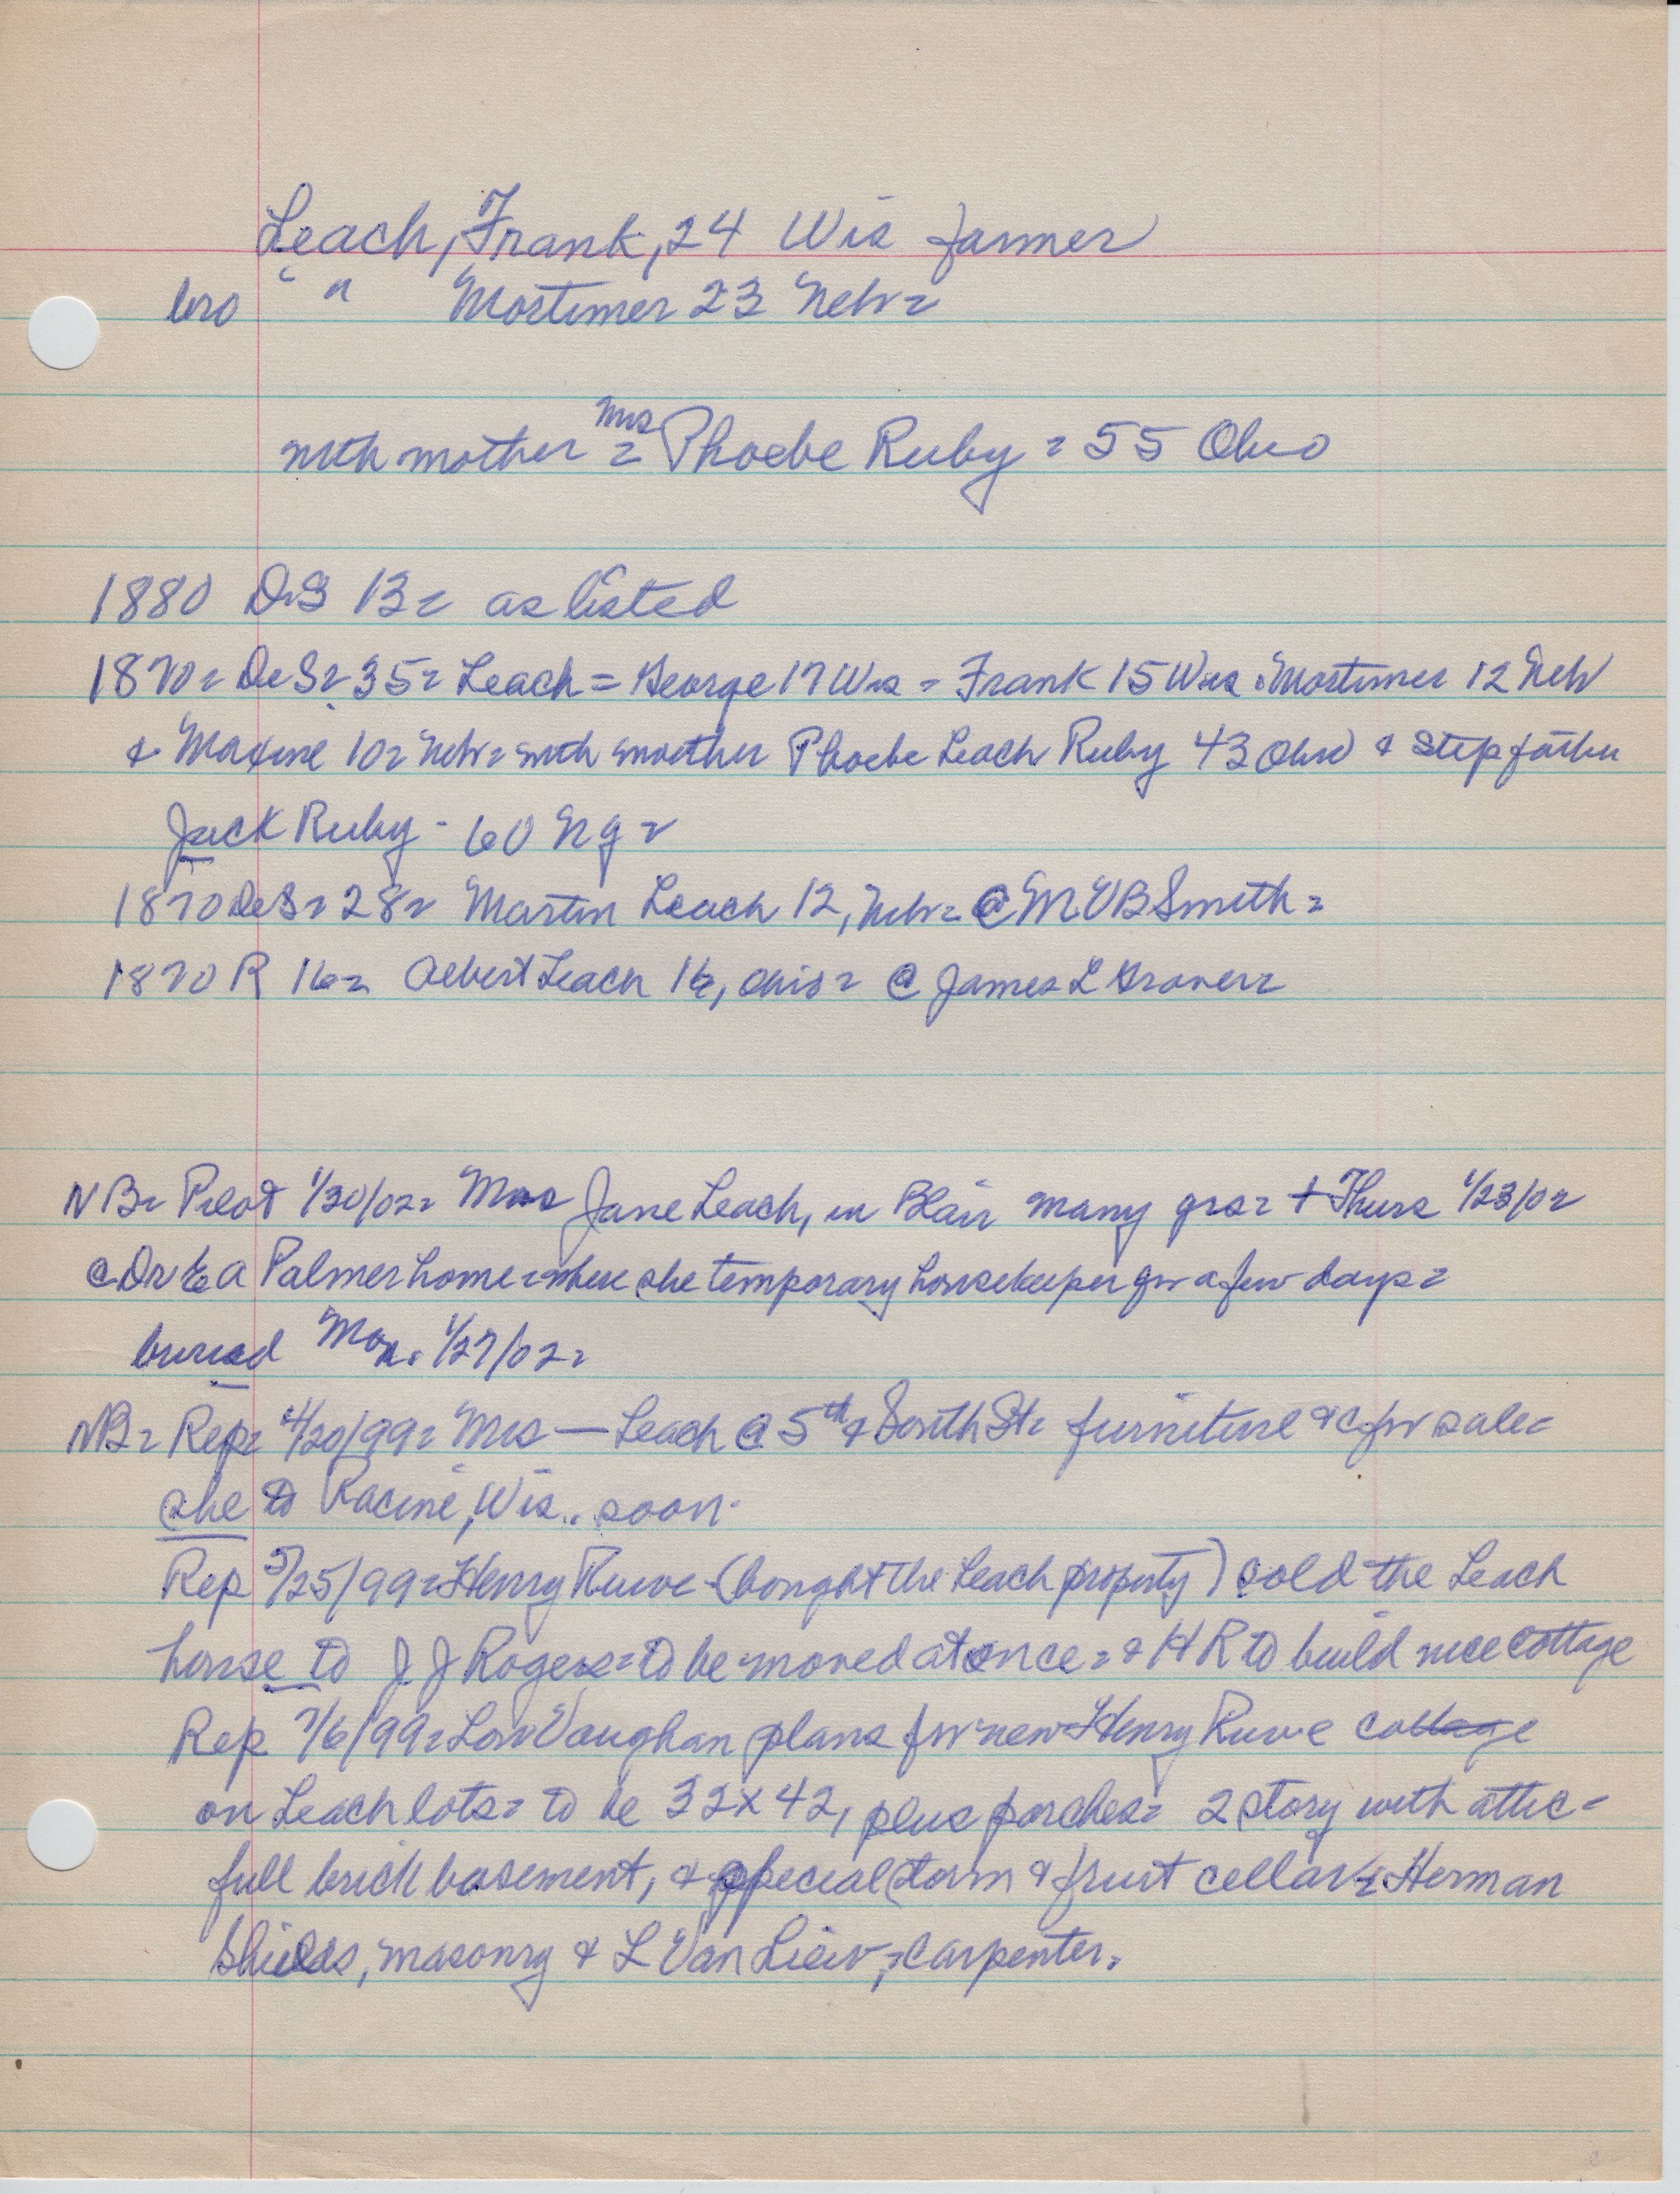 Leach, Frank, 24 Wis farmer
bro " " Mortimer 23 Nebr =
with mother = Mrs Phoebe Ruby = 55 Ohio
1880 DeS 13 = as listed
1870 = DeS = 35 = Leach = George 17 Wis = Frank 15 Wis . Mortimer 12 Neb
& Maxine 10 = Nebr = with mother Phoebe Leach Ruby 43 Ohio & step father
Jack Ruby - 60 Ng =
1870 DeS = 28 = Martin Leach 12, Nebr = @ M VB Smith =
1870 R 16 = Albert Leach 16, Ohio = @ James L Graver =
NB = Pilot 1/30/02 = Mrs Jane Leach, in Blair many yrs = + Thurs 1/23/02
@ Dr E A Palmer home = where she temporary housekeeper for a few days =
buried Mon. 1/27/02 =
NB = Rep = 4/20/99 = Mrs — Leach @ 5th & South St = furniture &c for sale =
she to Racine, Wis.. soon.
Rep 5/25/99 = Henry Ruwe (bought the Leach property) sold the Leach
house to J J Rogers = to be moved at once = & H R to build nice cottage
Rep 7/6/99 = Lou Vaughan plans for new Henry Ruwe cottage
on Leach lots = to be 32 x 42, plus porches = 2 story with attic =
full brick basement, & special storm & fruit cellar = Herman
Shields, masonry & L Van Liew, = carpenter.